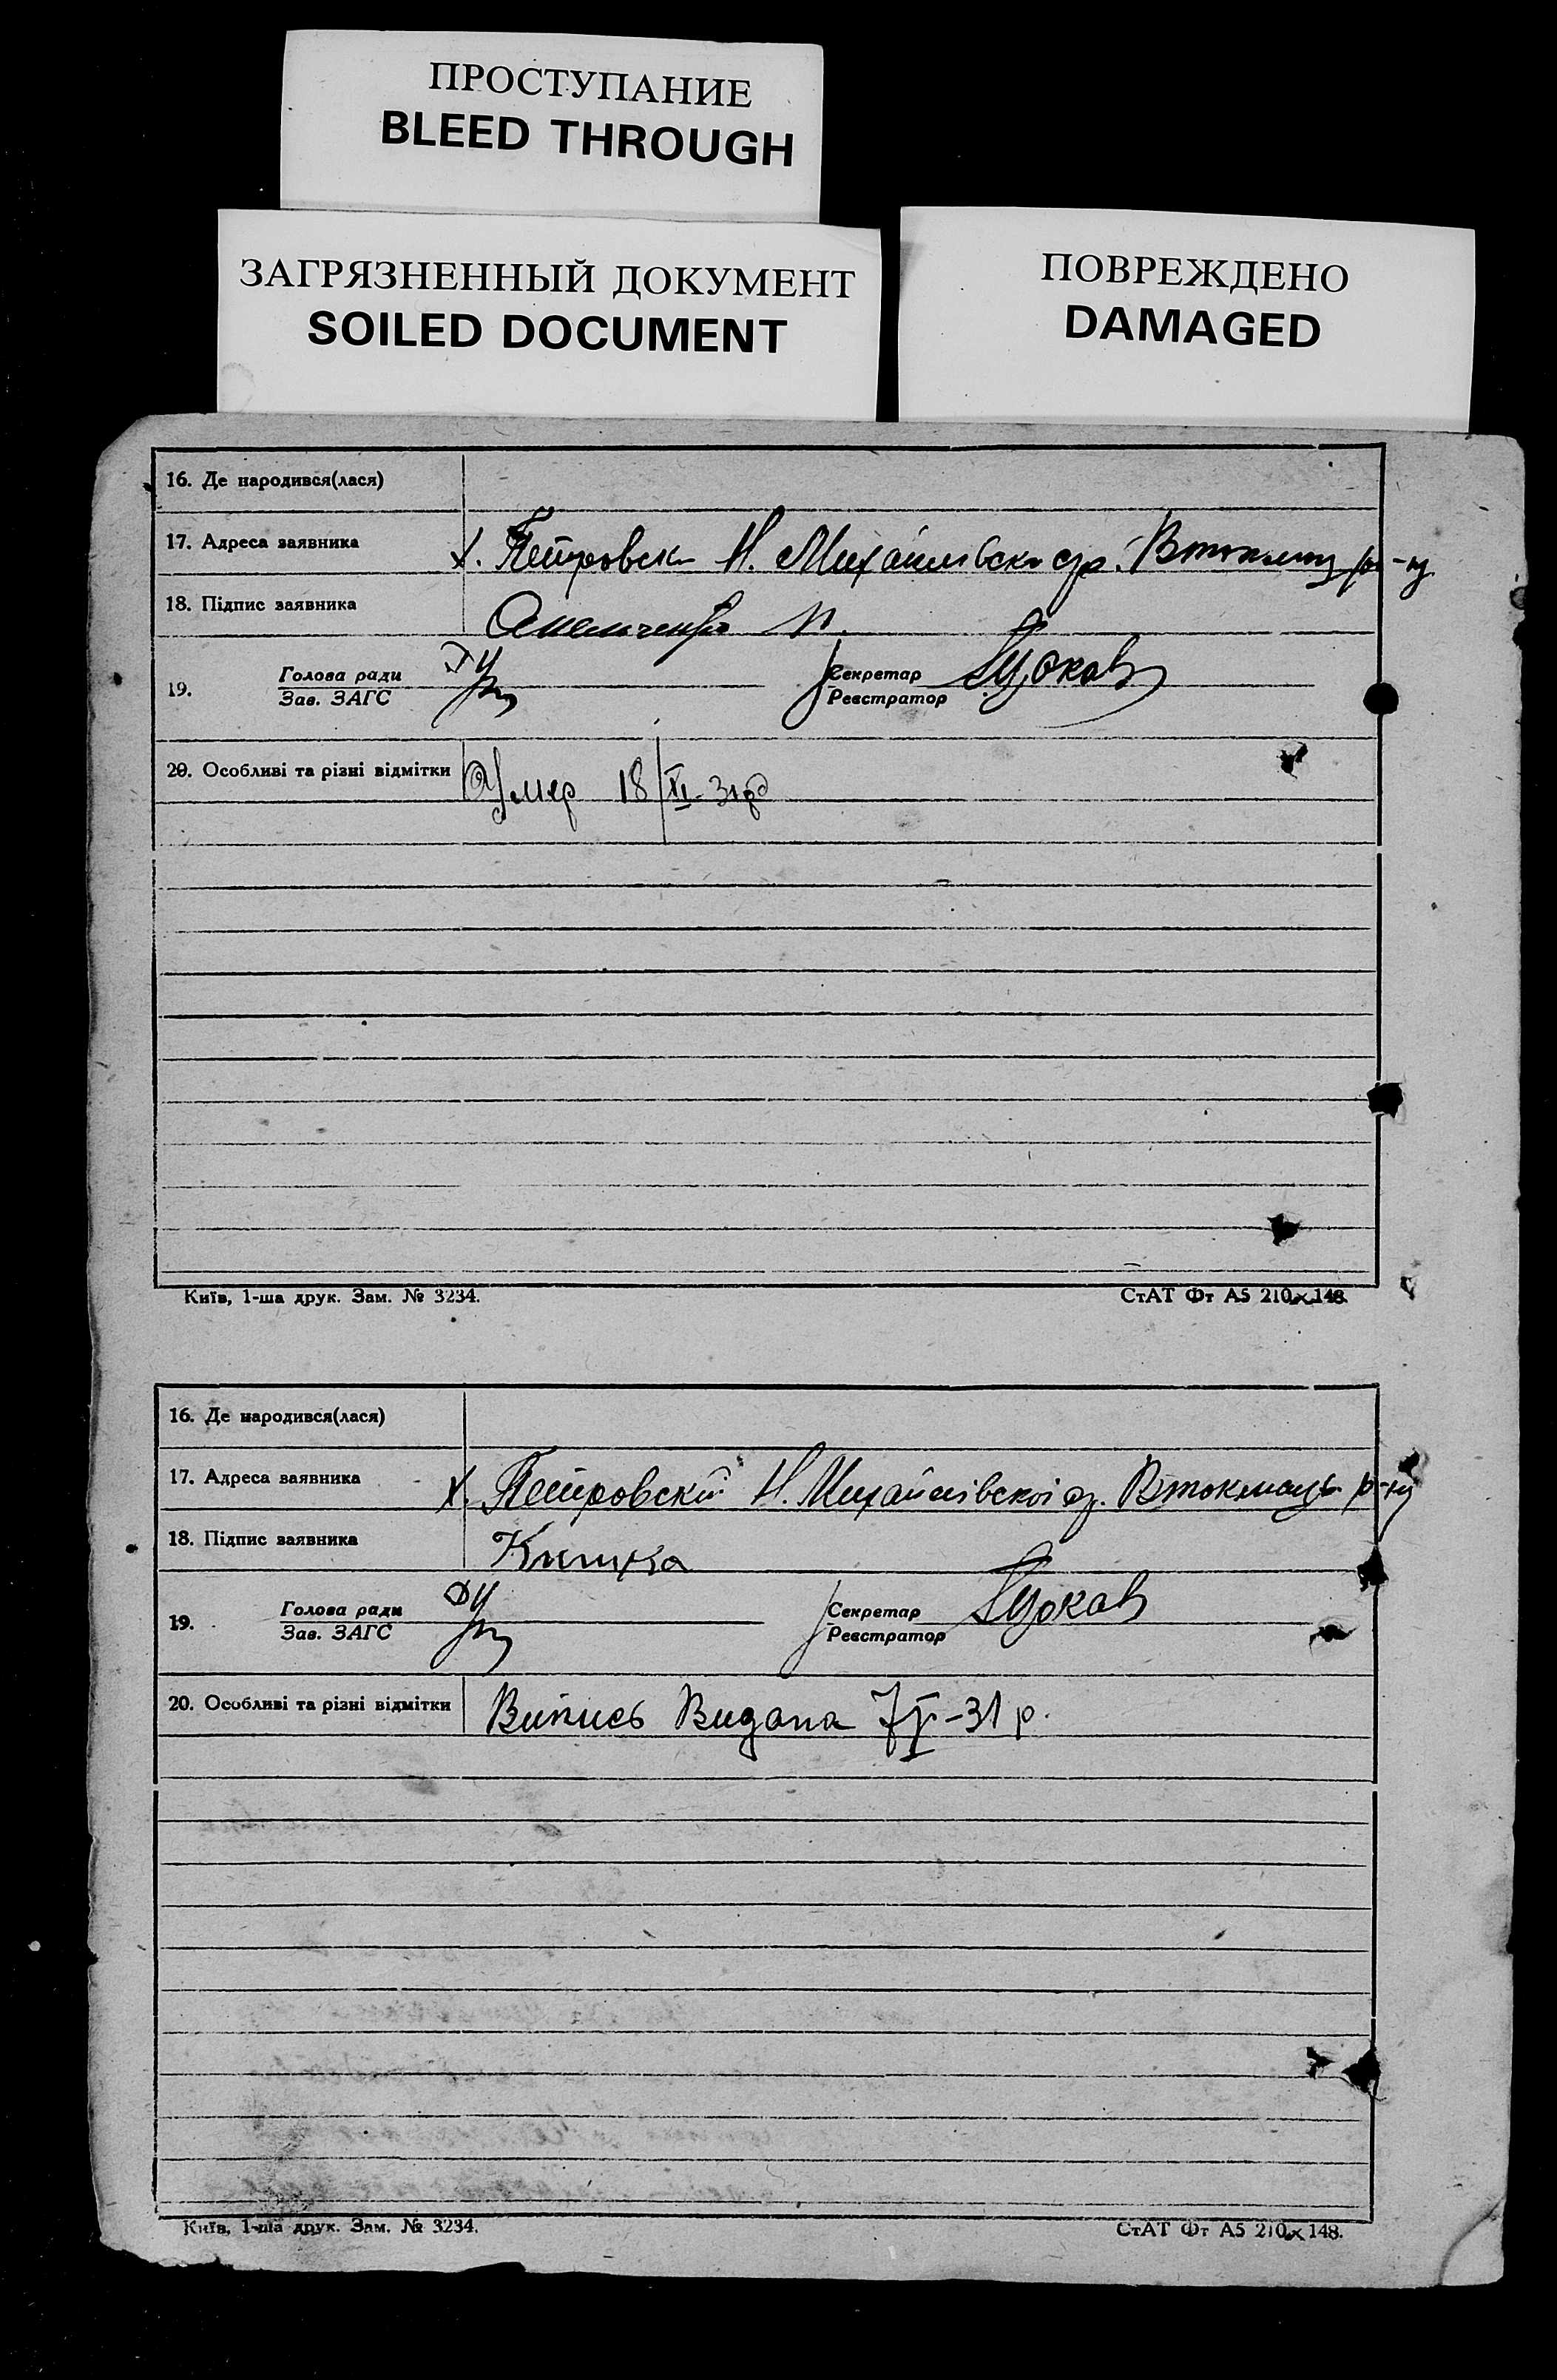 ПРОСТУПАНИЕ
BLEED THROUGH
ЗАГРЯЗНЕННЫЙ ДОКУМЕНТ
SOILED DOCUMENT
ПОВРЕЖДЕНО
DAMAGED
16. Де народився(лася)
17. Адреса заявника х. Петровськ Н. Михайлівско р-ну
18. Підпис заявника
19. Голова ради Секретар
Зав. ЗАГС Реєстратор
20. Особливі та різні відмітки Умер 18/XI-31
Київ, 1-ша друк. Зам. № 3234. СтАТ Фт А5 210×148.
16. Де народився(лася)
17. Адреса заявника х. Петровскій Н. Михайлівскоі р-ну
18. Підпис заявника Кишка
19. Голова ради Секретар
Зав. ЗАГС Реєстратор
20. Особливі та різні відмітки Випись Видана -31 р.
Київ, 1-ша друк. Зам. № 3234. СтАТ Фт А5 210×148.